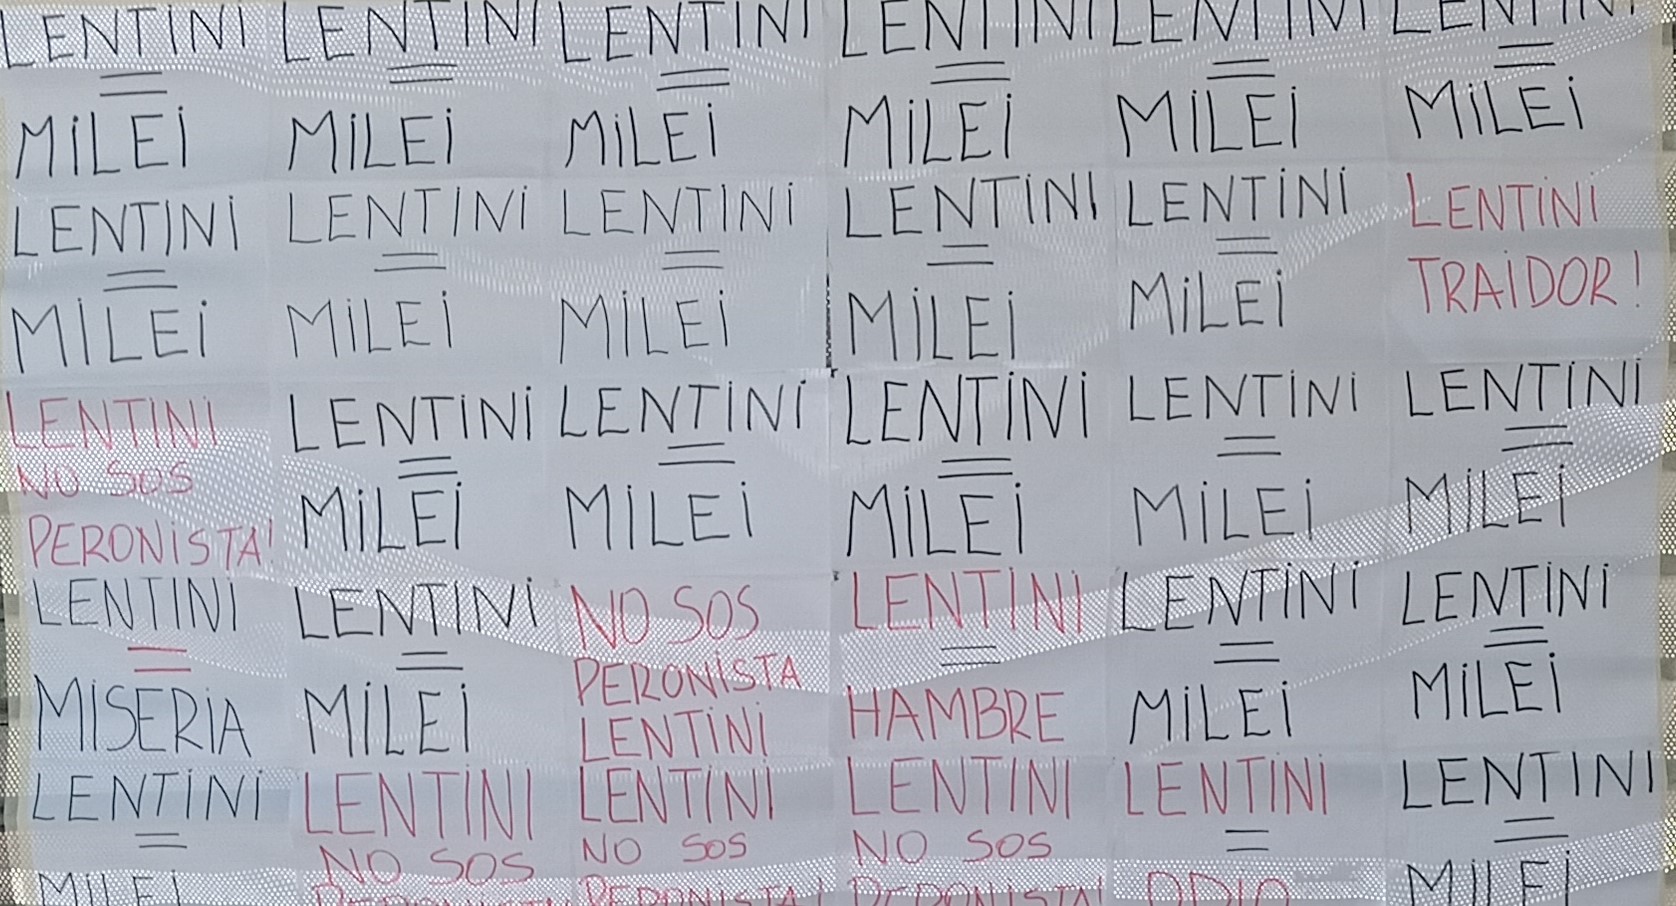 LENTINI LENTINI LENTINI LENTINI LENTINI LENTINI
= = = = = =
MILEI MILEI MILEI MILEI MILEI MILEI
LENTINI LENTINI LENTINI LENTINI LENTINI LENTINI
= = = = = TRAIDOR!
MILEI MILEI MILEI MILEI MILEI
LENTINI LENTINI LENTINI LENTINI LENTINI LENTINI
NO SOS = = = = =
PERONISTA! MILEI MILEI MILEI MILEI MILEI
LENTINI LENTINI NO SOS LENTINI LENTINI LENTINI
= = PERONISTA = = =
MISERIA MILEI LENTINI HAMBRE MILEI MILEI
LENTINI LENTINI LENTINI LENTINI LENTINI LENTINI
= NO SOS NO SOS NO SOS = =
MILEI PERONISTA PERONISTA! PERONISTA! ODIO MILEI